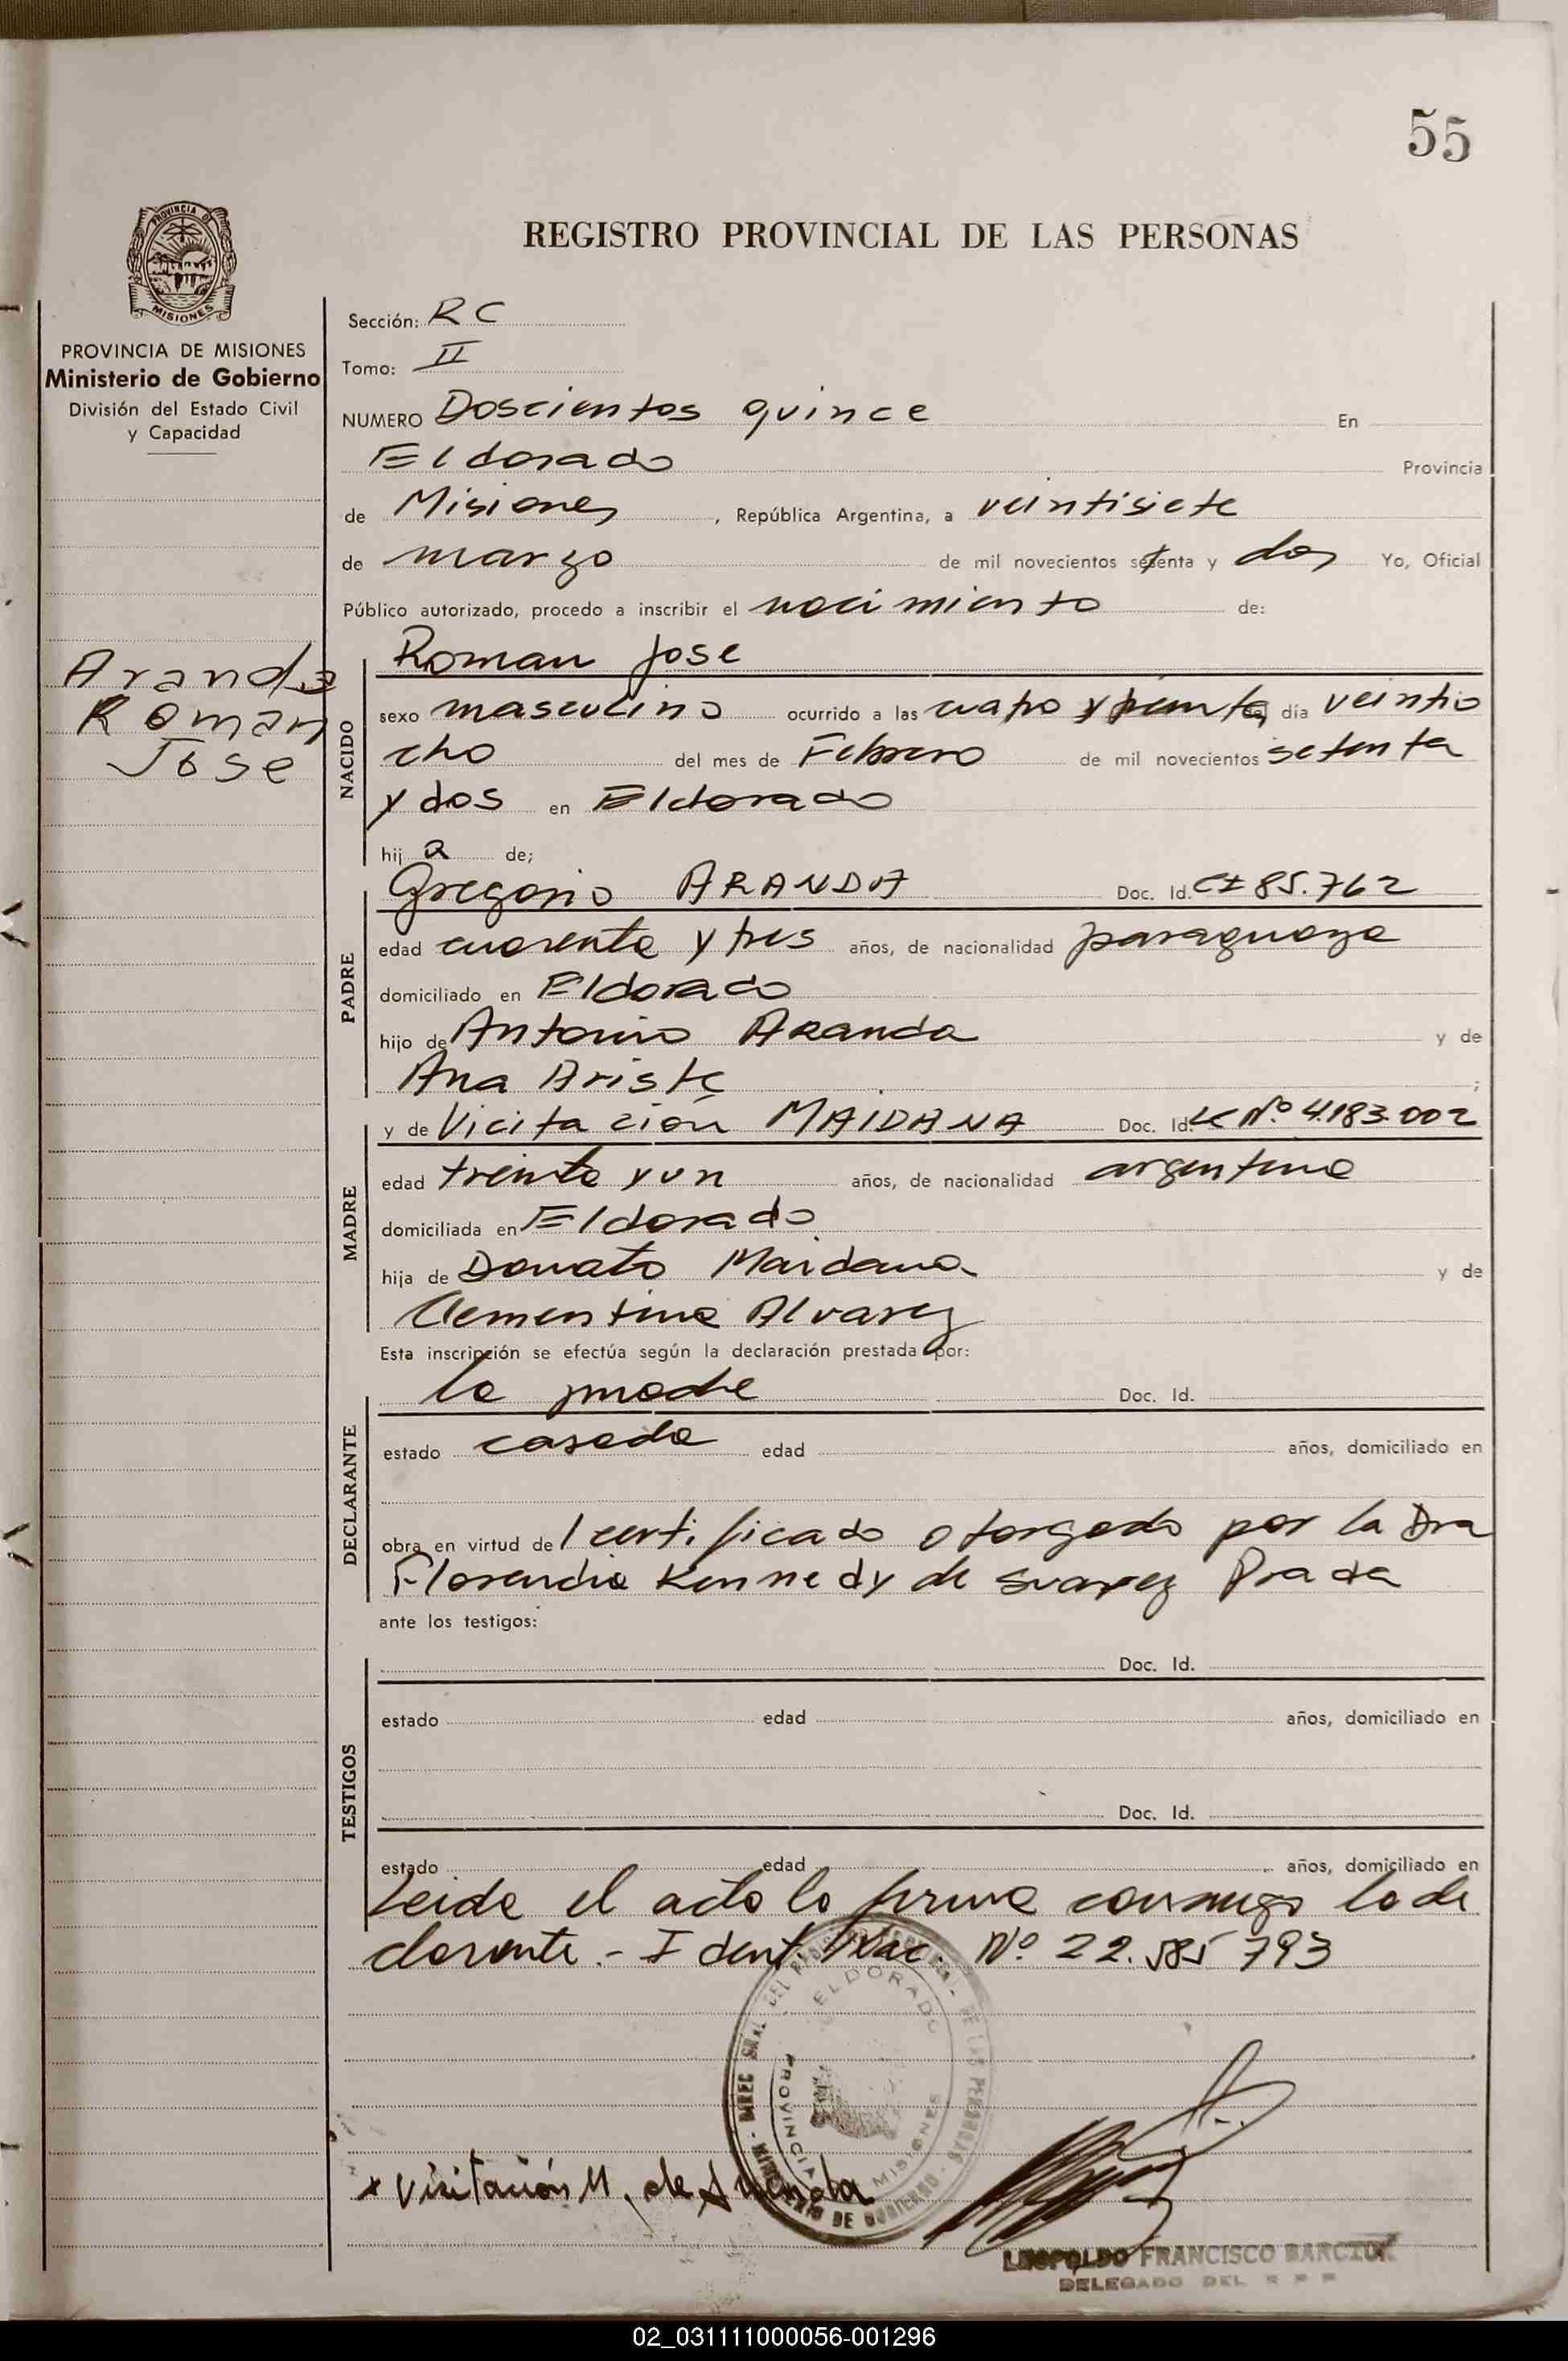 55
PROVINCIA DE
MISIONES
REGISTRO PROVINCIAL DE LAS PERSONAS
PROVINCIA DE MISIONES
Ministerio de Gobierno
División del Estado Civil
y Capacidad
Aranda
Roman
Jose
Sección: RC
Tomo: II
NUMERO Doscientos quince En
Eldorado Provincia
de Misiones, República Argentina, a veintisiete
de marzo de mil novecientos setenta y dos Yo, Oficial
Público autorizado, procedo a inscribir el nacimiento de:
NACIDO
Roman Jose
sexo masculino ocurrido a las cuatro y treinta día veintio
cho del mes de Febrero de mil novecientos setenta
y dos en Eldorado
hij a de;
PADRE
Gregorio ARANDA Doc. Id. CI 85.762
edad cuarenta y tres años, de nacionalidad paraguaya
domiciliado en Eldorado
hijo de Antonio Aranda y de
Ana Ariste ;
MADRE
y de Vicitación MAIDANA Doc. Id. LC Nº 4.183.002
edad treinta y un años, de nacionalidad argentina
domiciliada en Eldorado
hija de Donato Maidana y de
Clementina Alvarez
Esta inscripción se efectúa según la declaración prestada por:
DECLARANTE
la madre Doc. Id.
estado casada edad años, domiciliado en
obra en virtud de 1 certificado otorgado por la Dra
Florencia Kennedy de Suarez Prada
ante los testigos:
TESTIGOS
Doc. Id.
estado edad años, domiciliado en
Doc. Id.
estado edad años, domiciliado en
Leida el acta la firma conmigo la de
clarante.- Ident. Nac. Nº 22.585793
ELDORADO
PROVINCIA MISIONES
MINISTERIO DE GOBIERNO
x Visitación M. de Aranda
LEOPOLDO FRANCISCO
DELEGADO DEL R P P
02_031111000056-001296